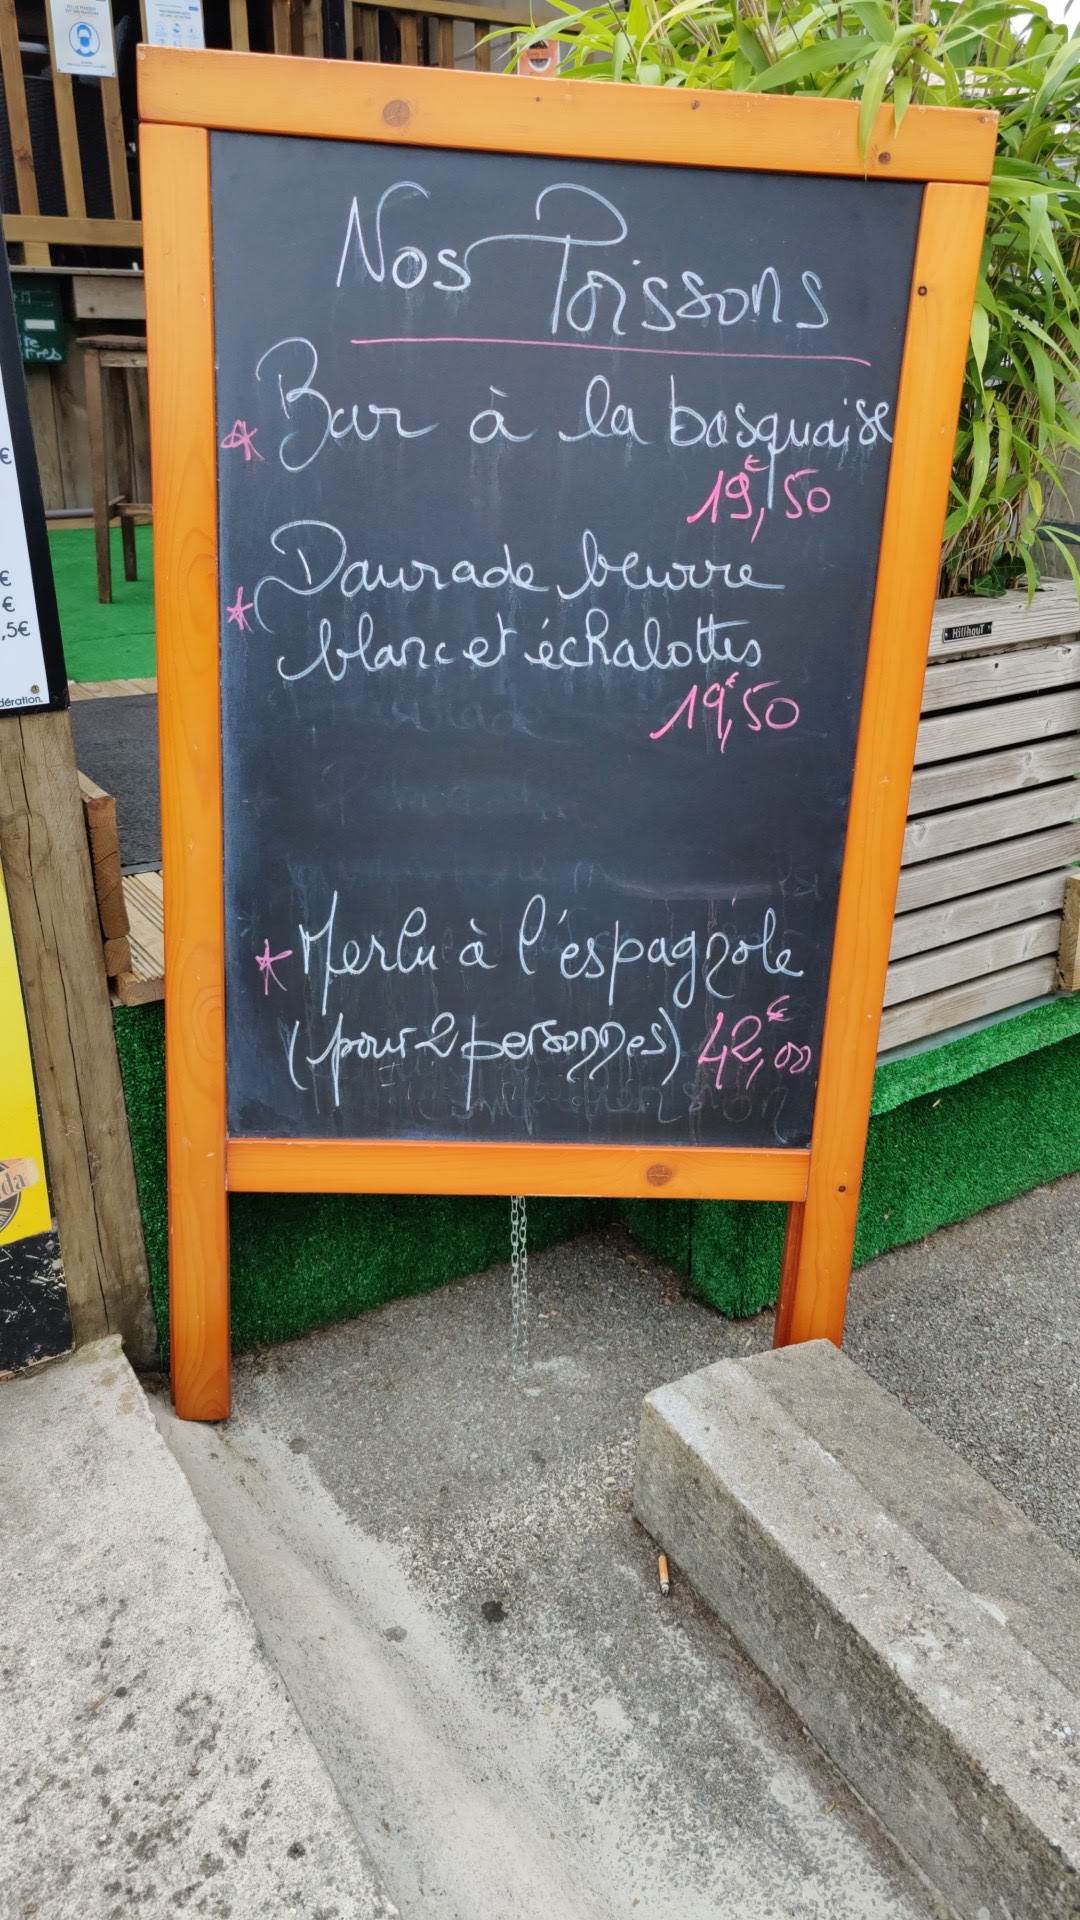 Nos Poissons
* Bar à la basquaise
19€,50
* Daurade beurre
blanc et échalottes
19€,50
* Merlu à l'espagnole
(pour 2 personnes) 42€,00
Hillhout
€
€
€
,5€
dération.
da